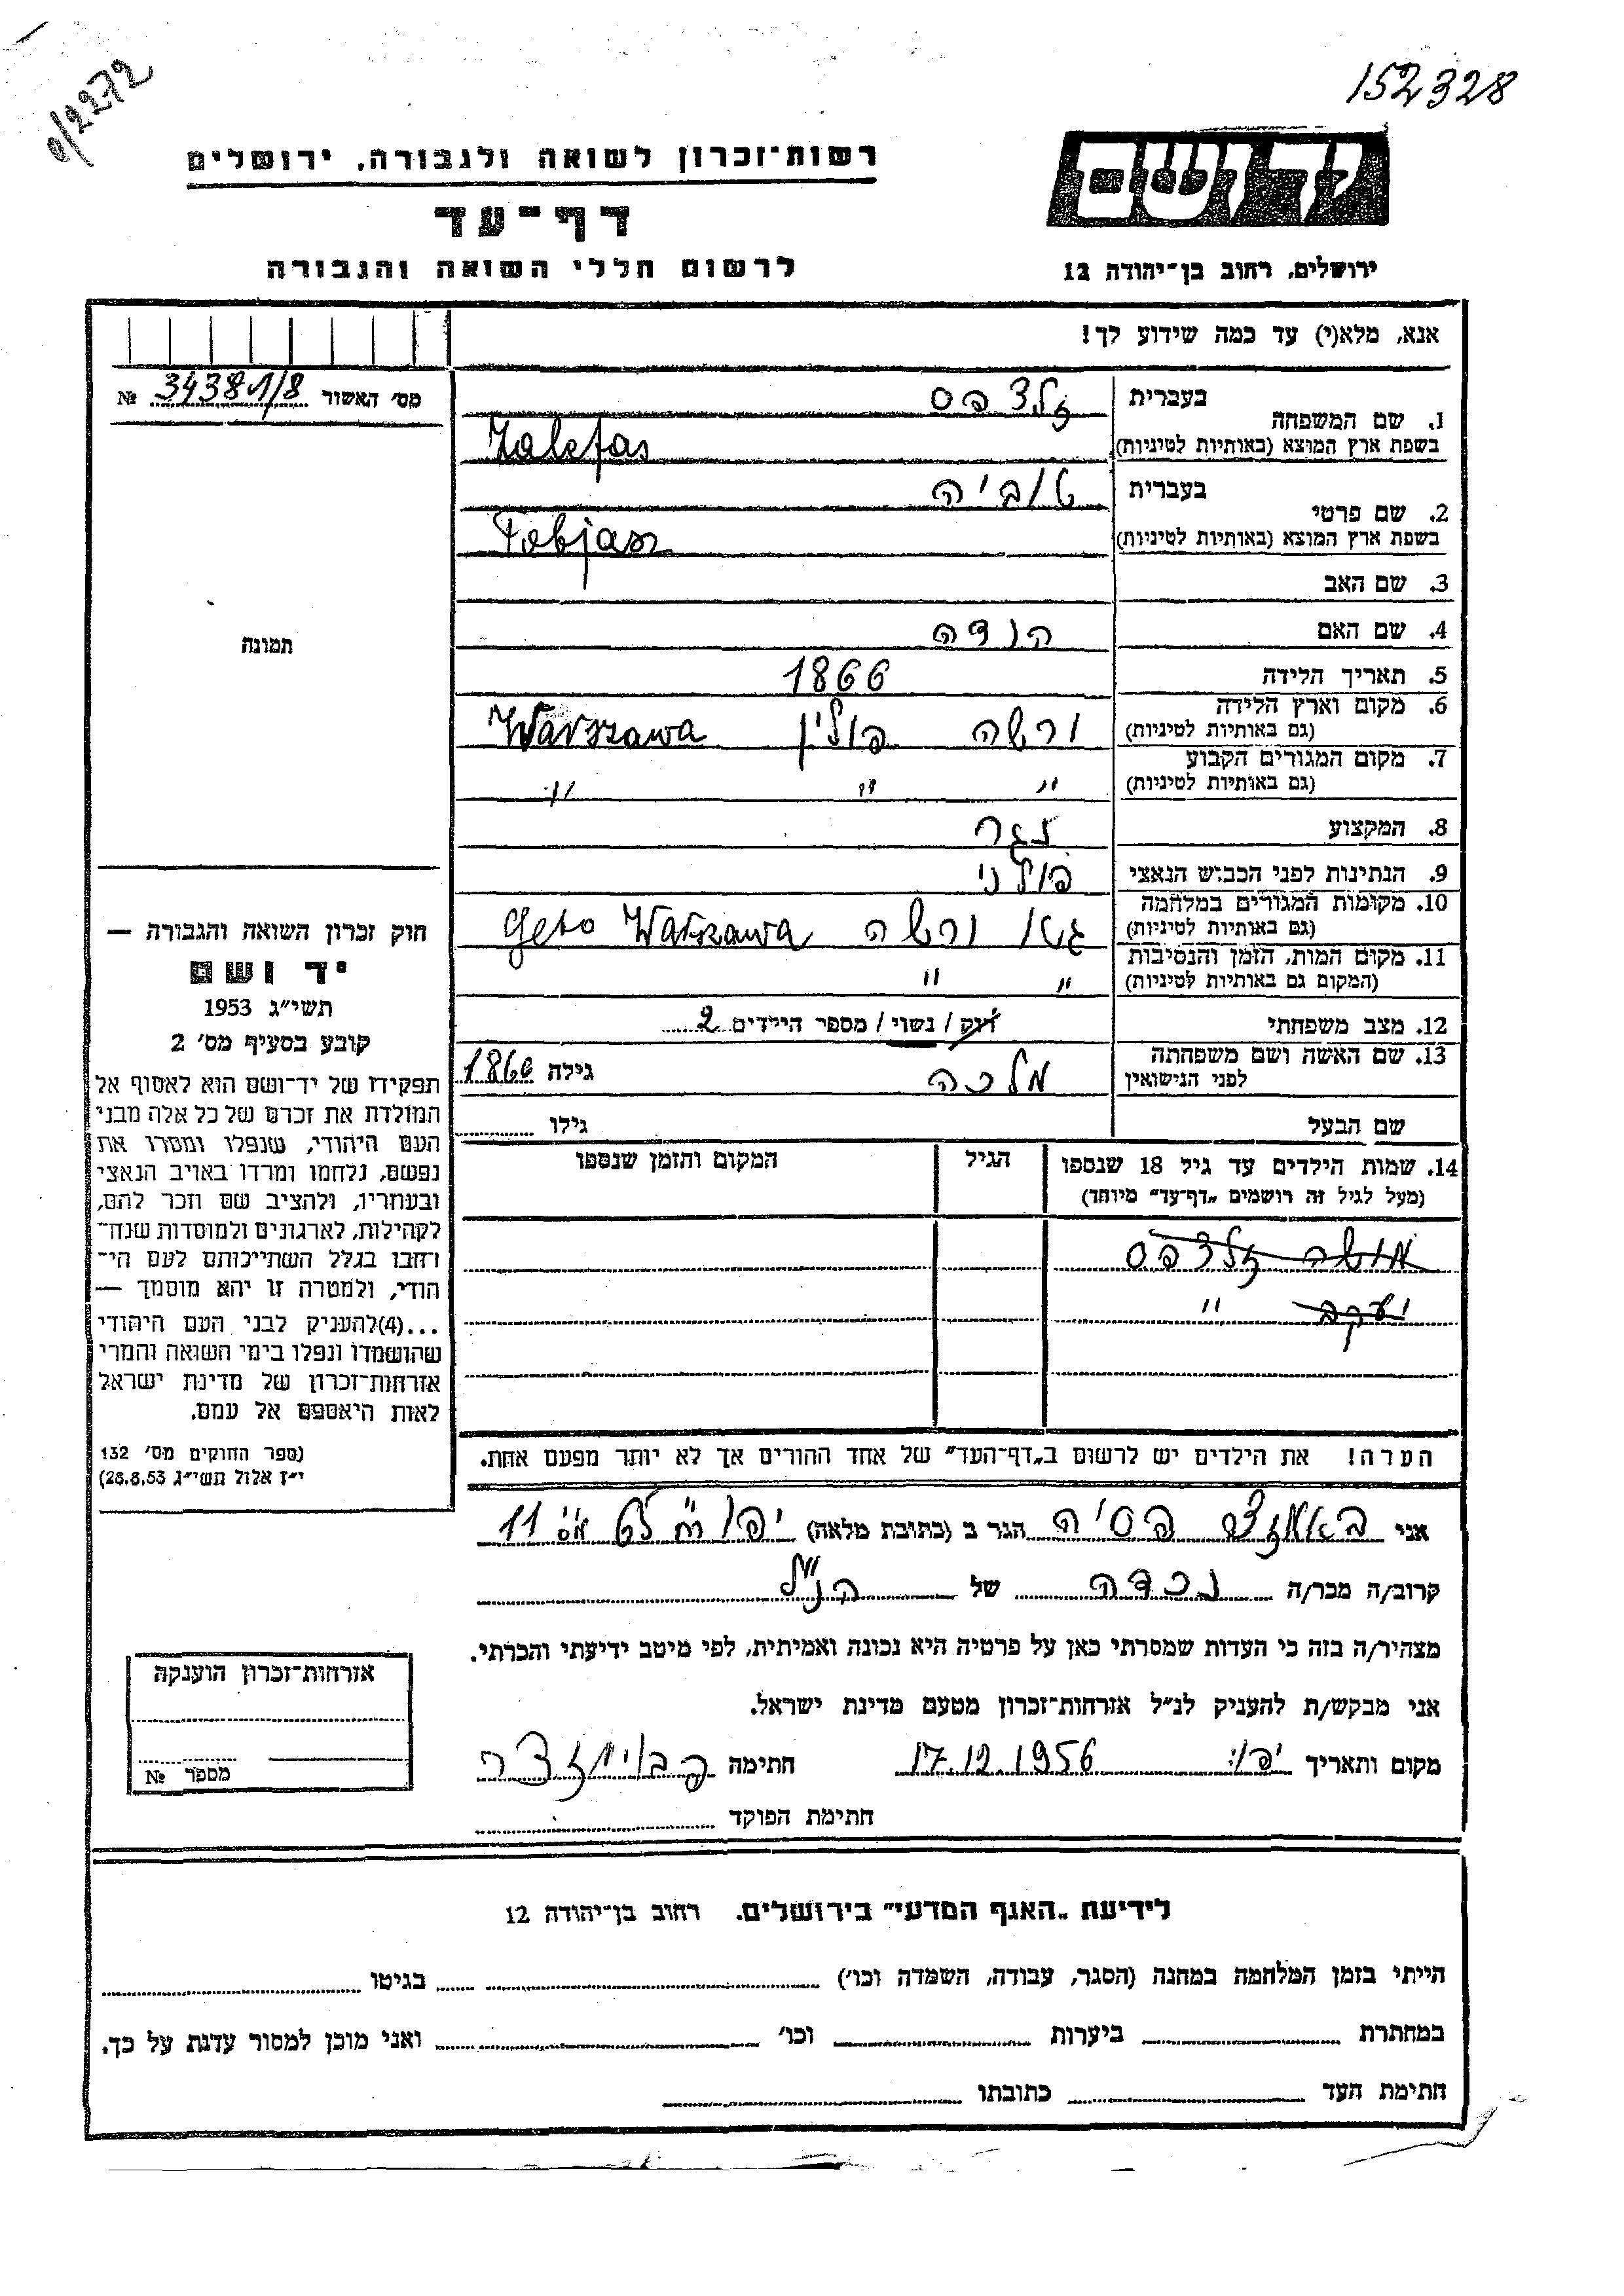 152328
0/2272
יד ושם
רשות־זכרון לשואה ולגבורה, ירושלים
דף־עד
לרשום חללי השואה והגבורה
ירושלים, רחוב בן־יהודה 12
אנא, מלא(י) עד כמה שידוע לך!
מס' האשור 34381/8 №
1. שם המשפחה
בעברית זלצפס
בשפת ארץ המוצא (באותיות לטיניות) Zalcfas
2. שם פרטי
בעברית טוביה
בשפת ארץ המוצא (באותיות לטיניות) Tobjasz
3. שם האב
4. שם האם הנדה
5. תאריך הלידה 1866
6. מקום וארץ הלידה
(גם באותיות לטיניות) ורשה פולין Warszawa
7. מקום המגורים הקבוע
(גם באותיות לטיניות) " " "
8. המקצוע נגר
9. הנתינות לפני הכבוש הנאצי פולני
10. מקומות המגורים במלחמה
(גם באותיות לטיניות) גטו ורשה Geto Warszawa
11. מקום המות, הזמן והנסיבות
(המקום גם באותיות לטיניות) " "
12. מצב משפחתי רוק / נשוי / מספר הילדים 2
13. שם האשה ושם משפחתה
לפני הנישואין מלכה גילה 1866
שם הבעל גילו
14. שמות הילדים עד גיל 18 שנספו
(מעל לגיל זה רושמים „דף־עד" מיוחד)
הגיל
המקום והזמן שנספו
משה זלצפס
יעקב "
הערה! את הילדים יש לרשום ב„דף־העד" של אחד ההורים אך לא יותר מפעם אחת.
תמונה
חוק זכרון השואה והגבורה —
יד ושם
תשי"ג 1953
קובע בסעיף מס' 2
תפקידו של יד־ושם הוא לאסוף אל
המולדת את זכרם של כל אלה מבני
העם היהודי, שנפלו ומסרו את
נפשם, נלחמו ומרדו באויב הנאצי
ובעוזריו, ולהציב שם וזכר להם,
לקהילות, לארגונים ולמוסדות שנח־
רבו בגלל השתייכותם לעם הי־
הודי, ולמטרה זו יהא מוסמך —
...(4) להעניק לבני העם היהודי
שהושמדו ונפלו בימי השואה והמרי
אזרחות־זכרון של מדינת ישראל
לאות היאספם אל עמם.
(ספר החוקים מס' 132
י"ז אלול תשי"ג 28.8.53)
אני פסיה הגר ב (כתובת מלאה) יפו 11
קרוב/ה מכר/ה נכדה של הנ"ל
מצהיר/ה בזה כי העדות שמסרתי כאן על פרטיה היא נכונה ואמיתית, לפי מיטב ידיעתי והכרתי.
אני מבקש/ת להעניק לנ"ל אזרחות־זכרון מטעם מדינת ישראל.
מקום ותאריך יפו: 17.12.1956 חתימה
חתימת הפוקד
אזרחות־זכרון הוענקה
מספר №
לידיעת „האגף המדעי" בירושלים. רחוב בן־יהודה 12
הייתי בזמן המלחמה במחנה (הסגר, עבודה, השמדה וכו') בגיטו
במחתרת ביערות וכו' ואני מוכן למסור עדות על כך.
חתימת העד כתובתו